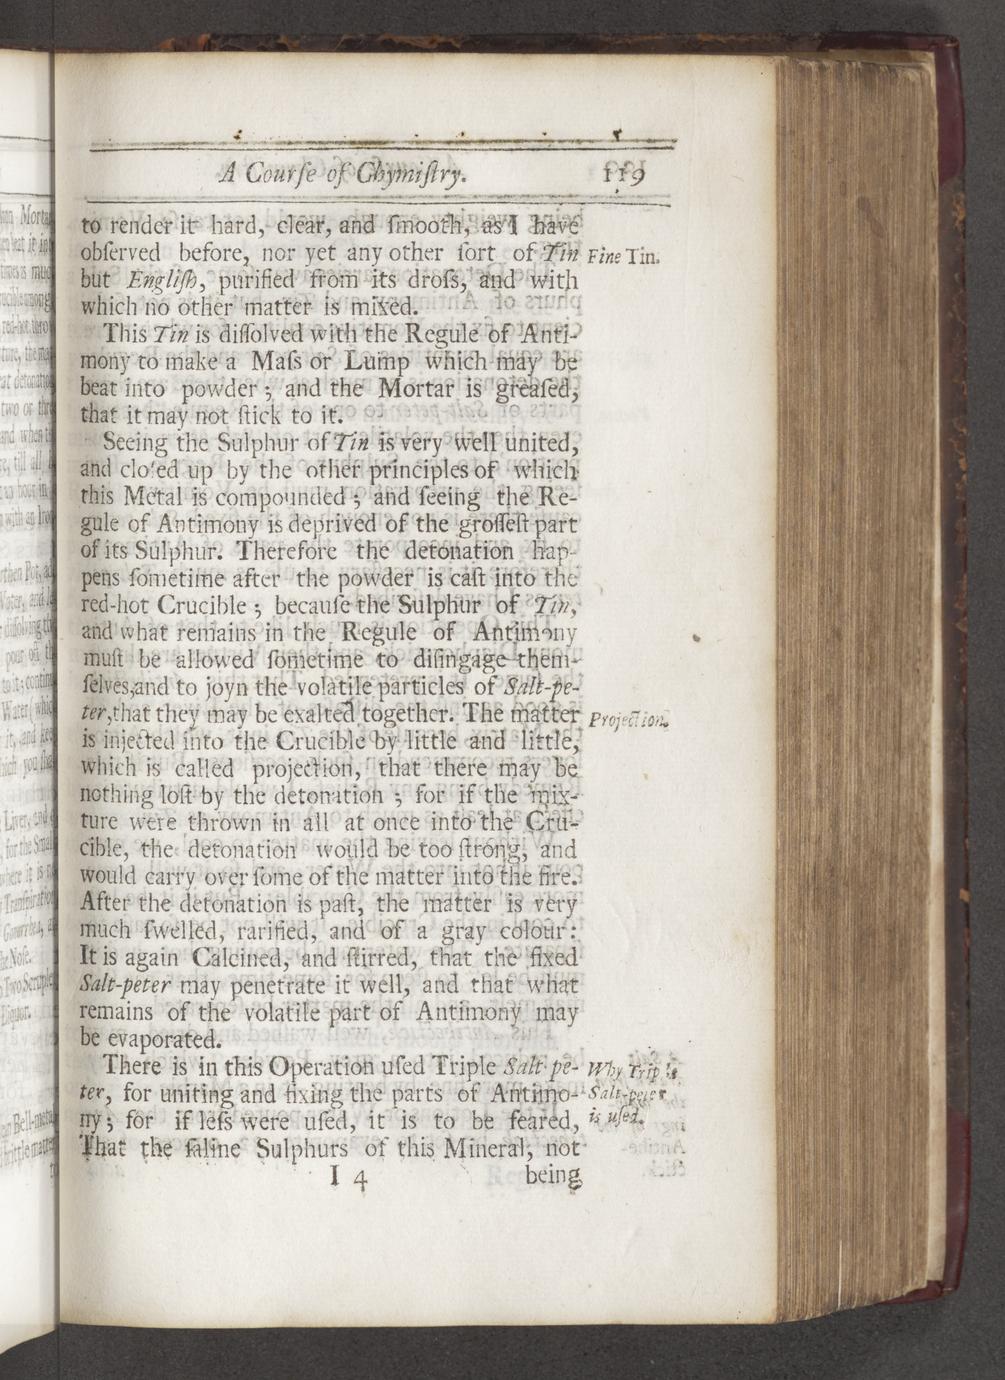 A Courſe of Chymiſtry. 119
to render it hard, clear, and ſmooth, as I have
obſerved before, nor yet any other ſort of Tin
Fine Tin.
but Engliſh, purified from its droſs, and with
which no other matter is mixed.
This Tin is diſſolved with the Regule of Anti-
mony to make a Maſs or Lump which may be
beat into powder; and the Mortar is greaſed,
that it may not ſtick to it.
Seeing the Sulphur of Tin is very well united,
and cloſed up by the other principles of which
this Metal is compounded; and ſeeing the Re-
gule of Antimony is deprived of the groſſeſt part
of its Sulphur. Therefore the detonation hap-
pens ſometime after the powder is caſt into the
red-hot Crucible; becauſe the Sulphur of Tin,
and what remains in the Regule of Antimony
muſt be allowed ſometime to diſingage them-
ſelves, and to joyn the volatile particles of Salt-pe-
ter, that they may be exalted together. The matter
Projection.
is injected into the Crucible by little and little,
which is called projection, that there may be
nothing loſt by the detonation; for if the mix-
ture were thrown in all at once into the Cru-
cible, the detonation would be too ſtrong, and
would carry over ſome of the matter into the fire.
After the detonation is paſt, the matter is very
much ſwelled, rarified, and of a gray colour:
It is again Calcined, and ſtirred, that the fixed
Salt-peter may penetrate it well, and that what
remains of the volatile part of Antimony may
be evaporated.
There is in this Operation uſed Triple Salt-pe-
Why Triple
ter, for uniting and fixing the parts of Antimo-
Salt-peter
ny; for if leſs were uſed, it is to be feared,
is uſed.
That the ſaline Sulphurs of this Mineral, not
I 4 being